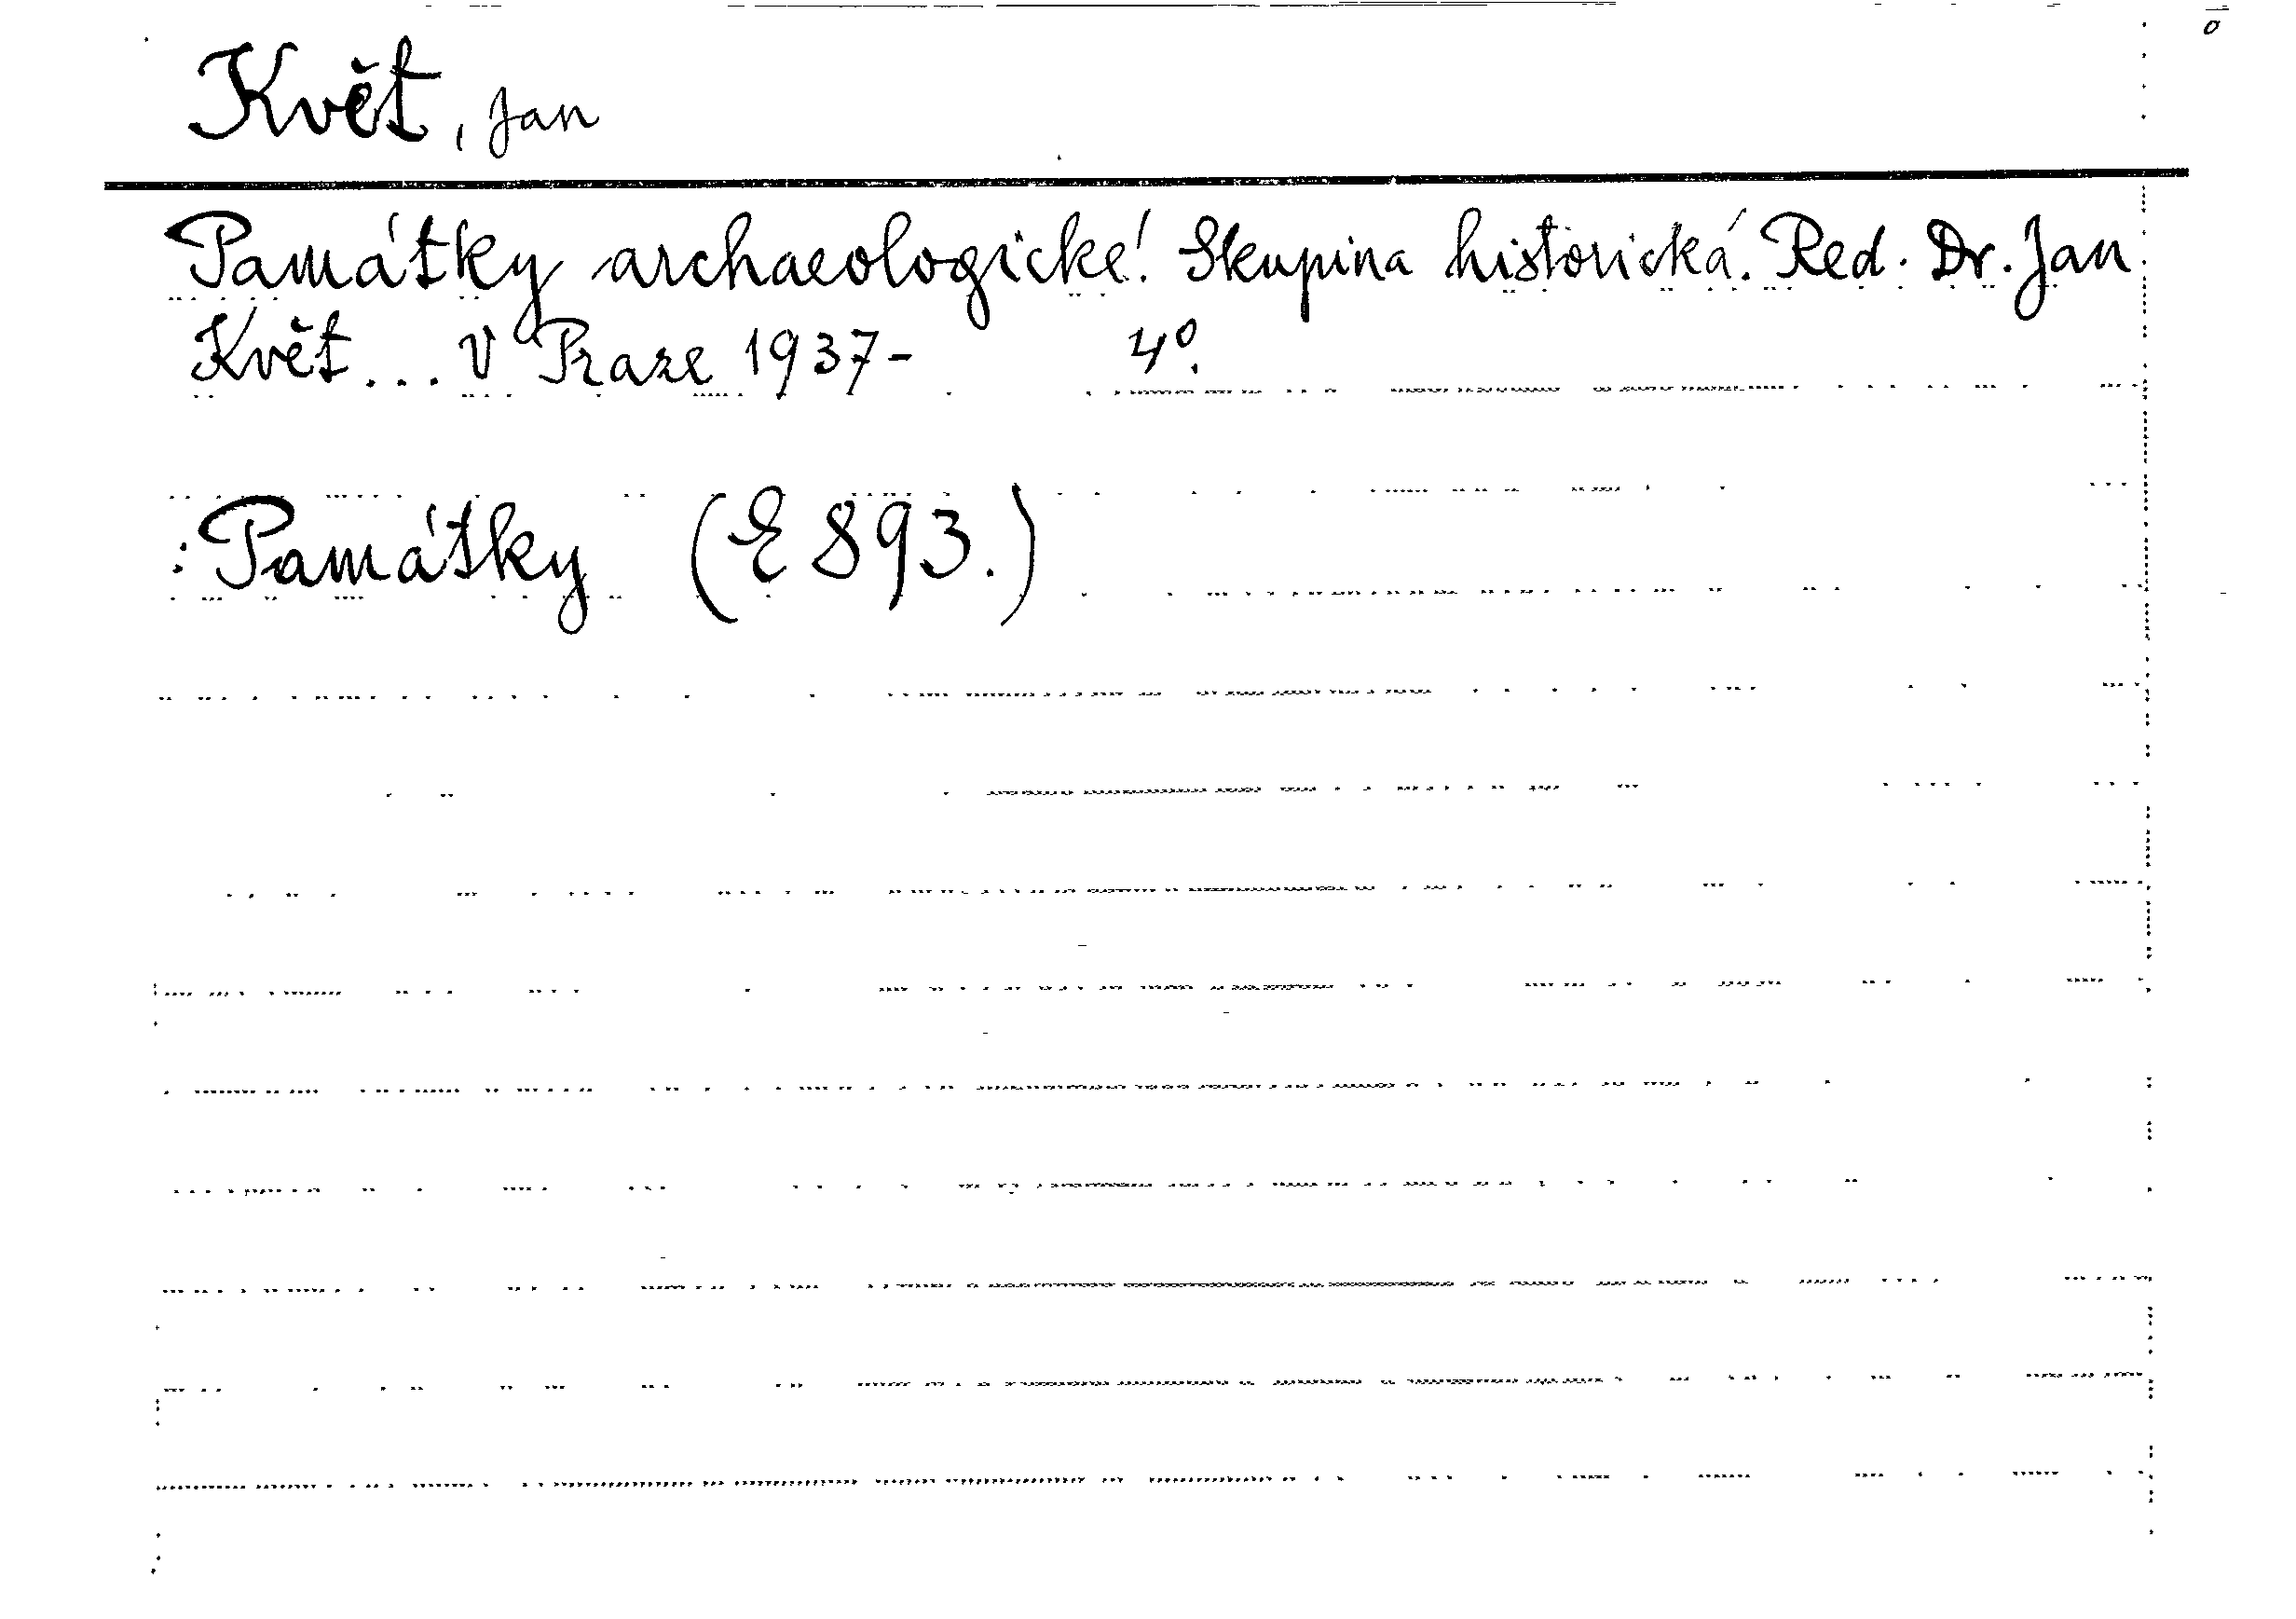 Květ, Jan
Památky archaeologické. Skupina historická. Red. Dr. Jan
Květ... V Praze 1937- 4°.
:Památky (E 893.)